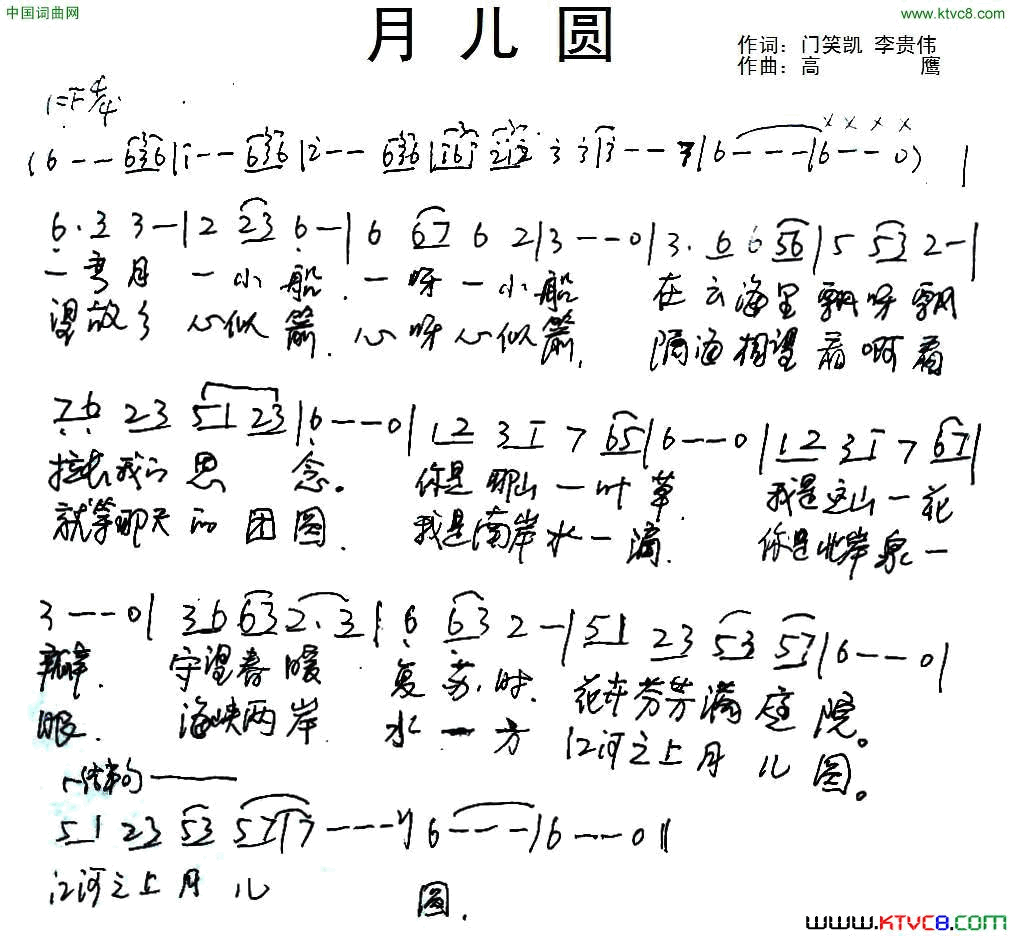 中国词曲网
www.ktvc8.com
月 儿 圆
作词：门笑凯 李贵伟
作曲：高 鹰
1=F 4/4
(6 - - 636|1 - - 636|2 - - 636|161 212 3 3|3 - - 7|6 - - -|6 - - 0) |
x x x x
6·3 3 -|2 23 6 -|6 67 6 2|3 - - 0|3· 6 6 56|5 53 2 -|
一弯月 一小船，一呀一小船 在云海里飘呀飘
望故乡 心似箭，心呀心似箭， 隔海相望看啊看
76 23 51 23|6 - - 0|12 31 7 65|6 - - 0|12 31 7 67|
拉长我的思 念。 你是那山一叶草， 我是这山一花
就等那天的团圆． 我是南岸水一滴． 你是北岸泉一
3 - - - 0| 36 63 2· 3|6 63 2 -|51 23 53 57|6 - - 0|
瓣． 守望春暖 复苏时． 花卉芬芳满庭院。
眼． 海峡两岸 水一方 江河之上月儿圆。
结束句
51 23 53 57|7 - - - -|6 - - -|6 - - - 0||
江河之上月儿 圆．
www.KTVC8.COM